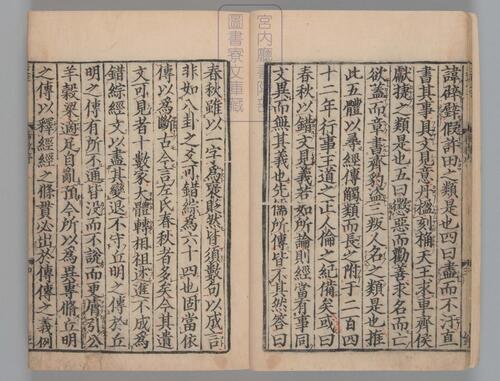 宮内廳書陵部
圖書寮文庫藏
諱辟璧假許田之類是也四曰盡而不汙直
書其事具文見意丹楹刻桷天王求車齊侯
獻捷之類是也五曰懲惡而勸善求名而亡
欲蓋而章書齊豹盜三叛人名之類是也推
此五體以尋經傳觸類而長之附于二百四
十二年行事王道之正人倫之紀備矣或曰
春秋以錯文見義若如所論則經當有事同
文異而無其義也先儒所傳皆不其然荅曰
春秋雖以一字為褒貶然皆須數句以成言
非如八卦之爻可錯綜為六十四也固當依
傳以為斷古今言左氏春秋者多矣今其遺
文可見者十數家大體轉相祖述進不成為
錯綜經文以盡其變退不守丘明之傳於丘
明之傳有所不通皆沒而不說而更膚引公
羊穀梁適足自亂預今所以為異專脩丘明
之傳以釋經經之條貫必出於傳傳之義例